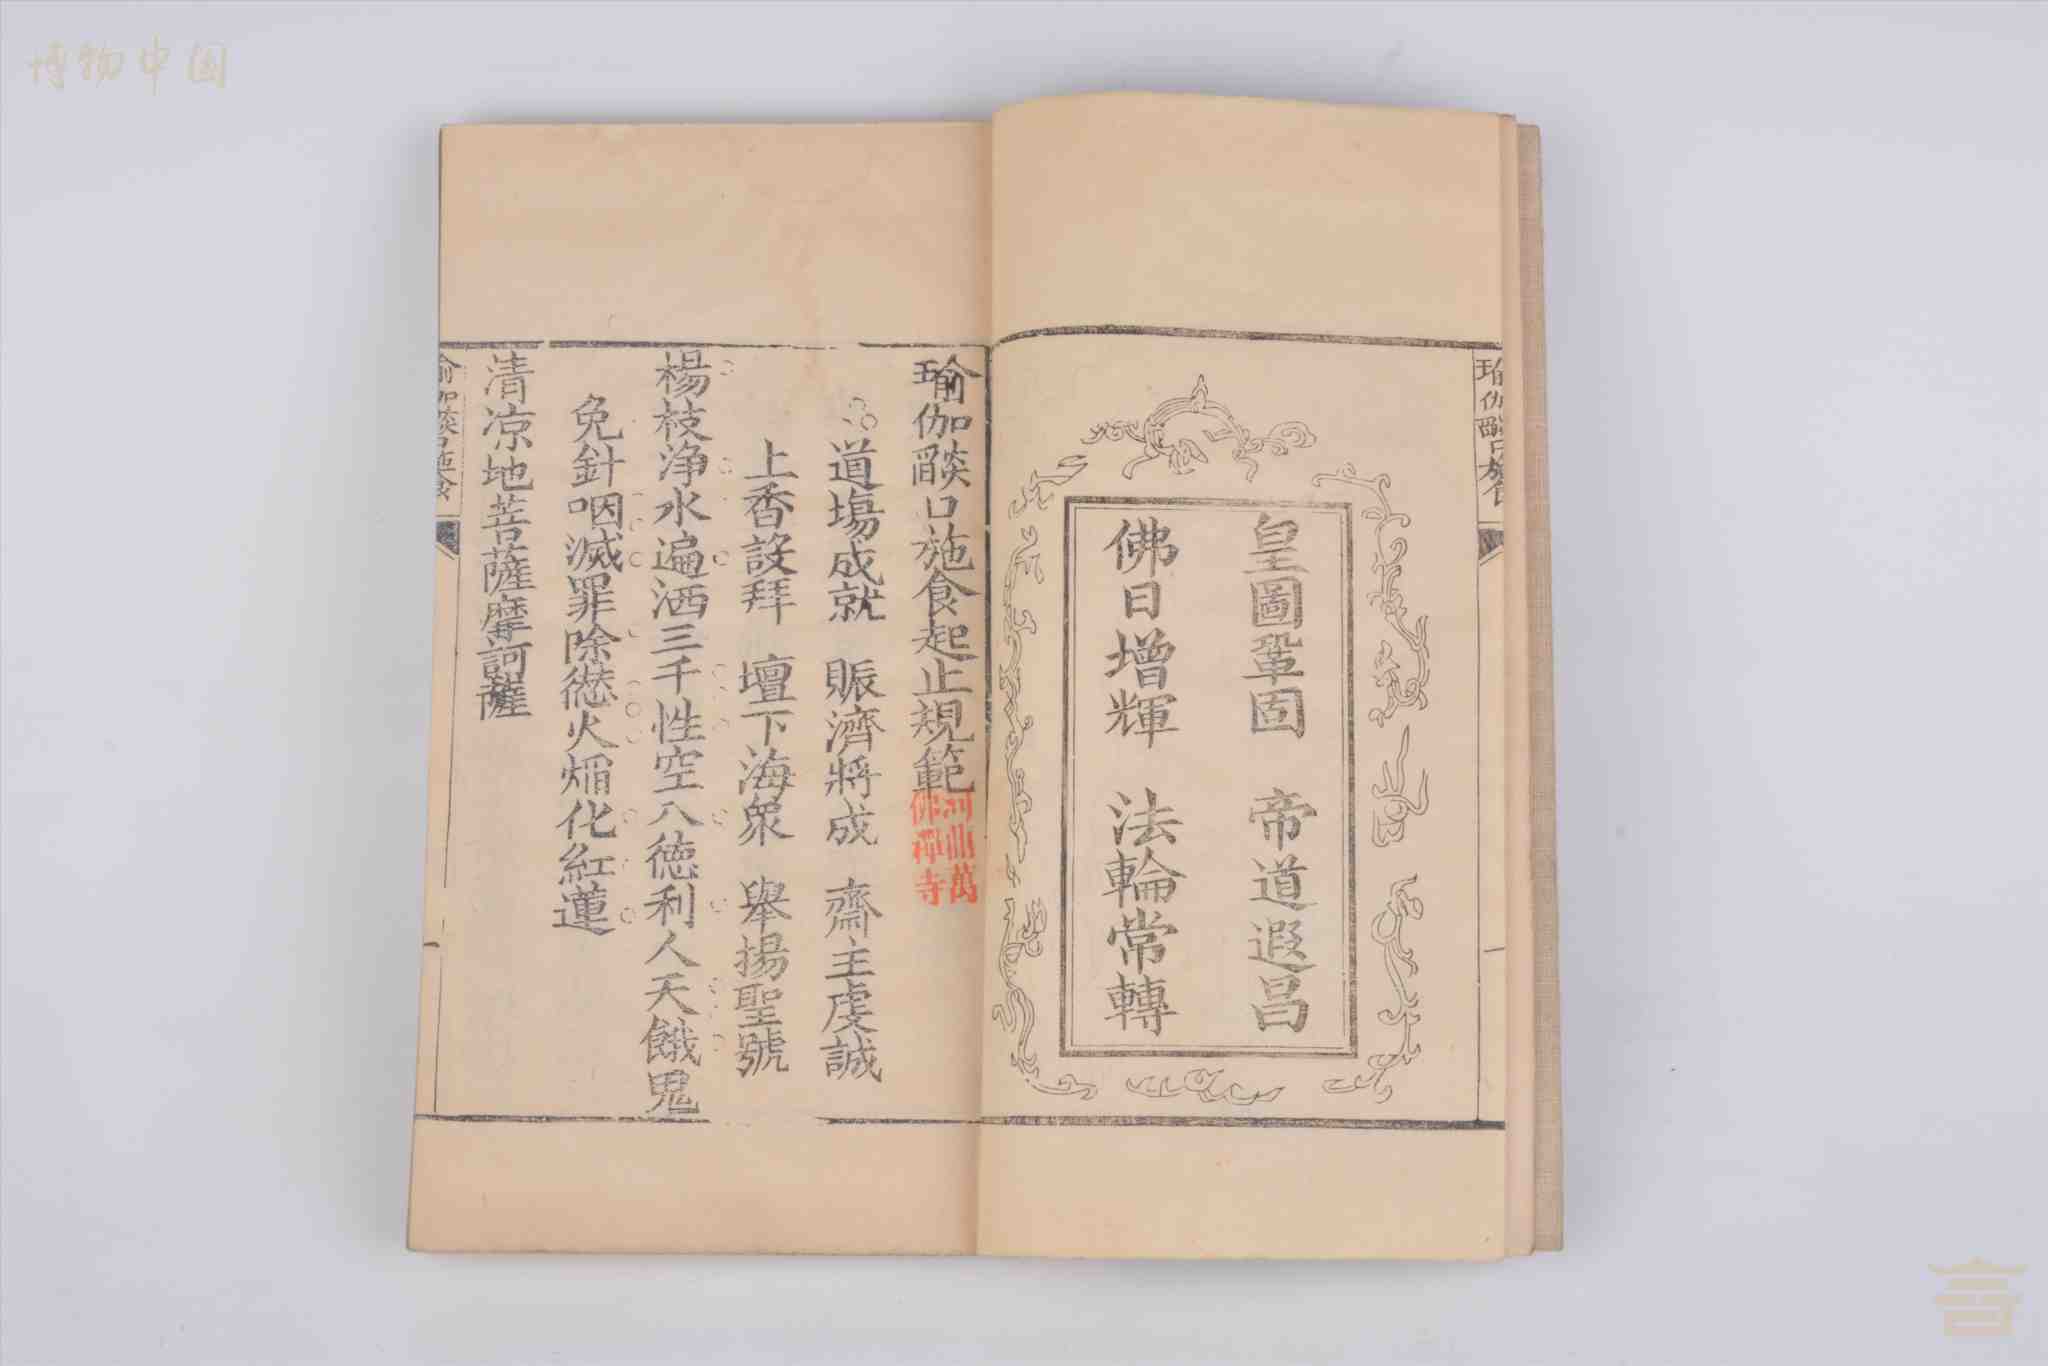 博物中国
瑜伽燄口施食
皇圖鞏固　帝道遐昌
佛日增輝　法輪常轉
瑜伽燄口施食起止規範
河曲萬
佛禪寺
道塲成就　賑濟將成　齋主虔誠
上香設拜　壇下海衆　舉揚聖號
楊枝浄水遍洒三千性空八德利人天餓鬼
免針咽滅罪除愆火熖化紅蓮
清凉地菩薩摩訶薩
瑜伽燄口施食